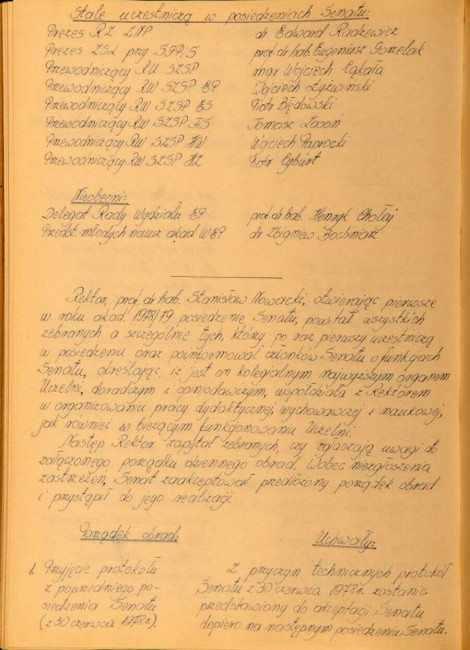 Stale uczestniczą w posiedzeniach Senatu:
Prezes RZ ZNP dr Edward Radzewicz
Prezes ZSL przy SGPiS prof. dr hab. Eugeniusz Gorzelak
Przewodniczący RU SZSP mgr Wojciech
Przewodniczący RW SZSP EP Wojciech Żyżwiński
Przewodniczący RW SZSP ES Piotr Błędowski
Przewodniczący RW SZSP FS Tomasz
Przewodniczący RW SZSP HW Wojciech Paprocki
Przewodniczący RW SZSP HZ Piotr
Nieobecni:
Delegat Rady Wydziału EP prof. dr hab. Henryk Chołaj
Przedst. młodych nauk. akad. W EP dr Zbigniew Bochniarz
Rektor, prof. dr hab. Stanisław Nowacki, otwierając pierwsze
w roku akad. 1978/79 posiedzenie Senatu, powitał wszystkich
zebranych a szczególnie tych, którzy po raz pierwszy uczestniczą
w posiedzeniu oraz poinformował członków Senatu o funkcjach
Senatu, określając, iż jest on kolegialnym najwyższym organem
Uczelni, doradczym i opiniodawczym, współdziała z Rektorem
w organizowaniu pracy dydaktycznej, wychowawczej i naukowej,
jak również w bieżącym funkcjonowaniu Uczelni.
Następ. Rektor zapytał zebranych, czy zgłaszają uwagi do
załączonego porządku dziennego obrad. Wobec niezgłoszenia
zastrzeżeń, Senat zaakceptował przedłożony porządek obrad
i przystąpił do jego realizacji.
Porządek obrad: Uchwały:
1. Przyjęcie protokółu Z przyczyn technicznych protokół
z poprzedniego po- Senatu z 30 czerwca 1978 r. zostanie
siedzenia Senatu przedstawiony do akceptacji Senatu
(z 30 czerwca 1978 r.) dopiero na następnym posiedzeniu Senatu.